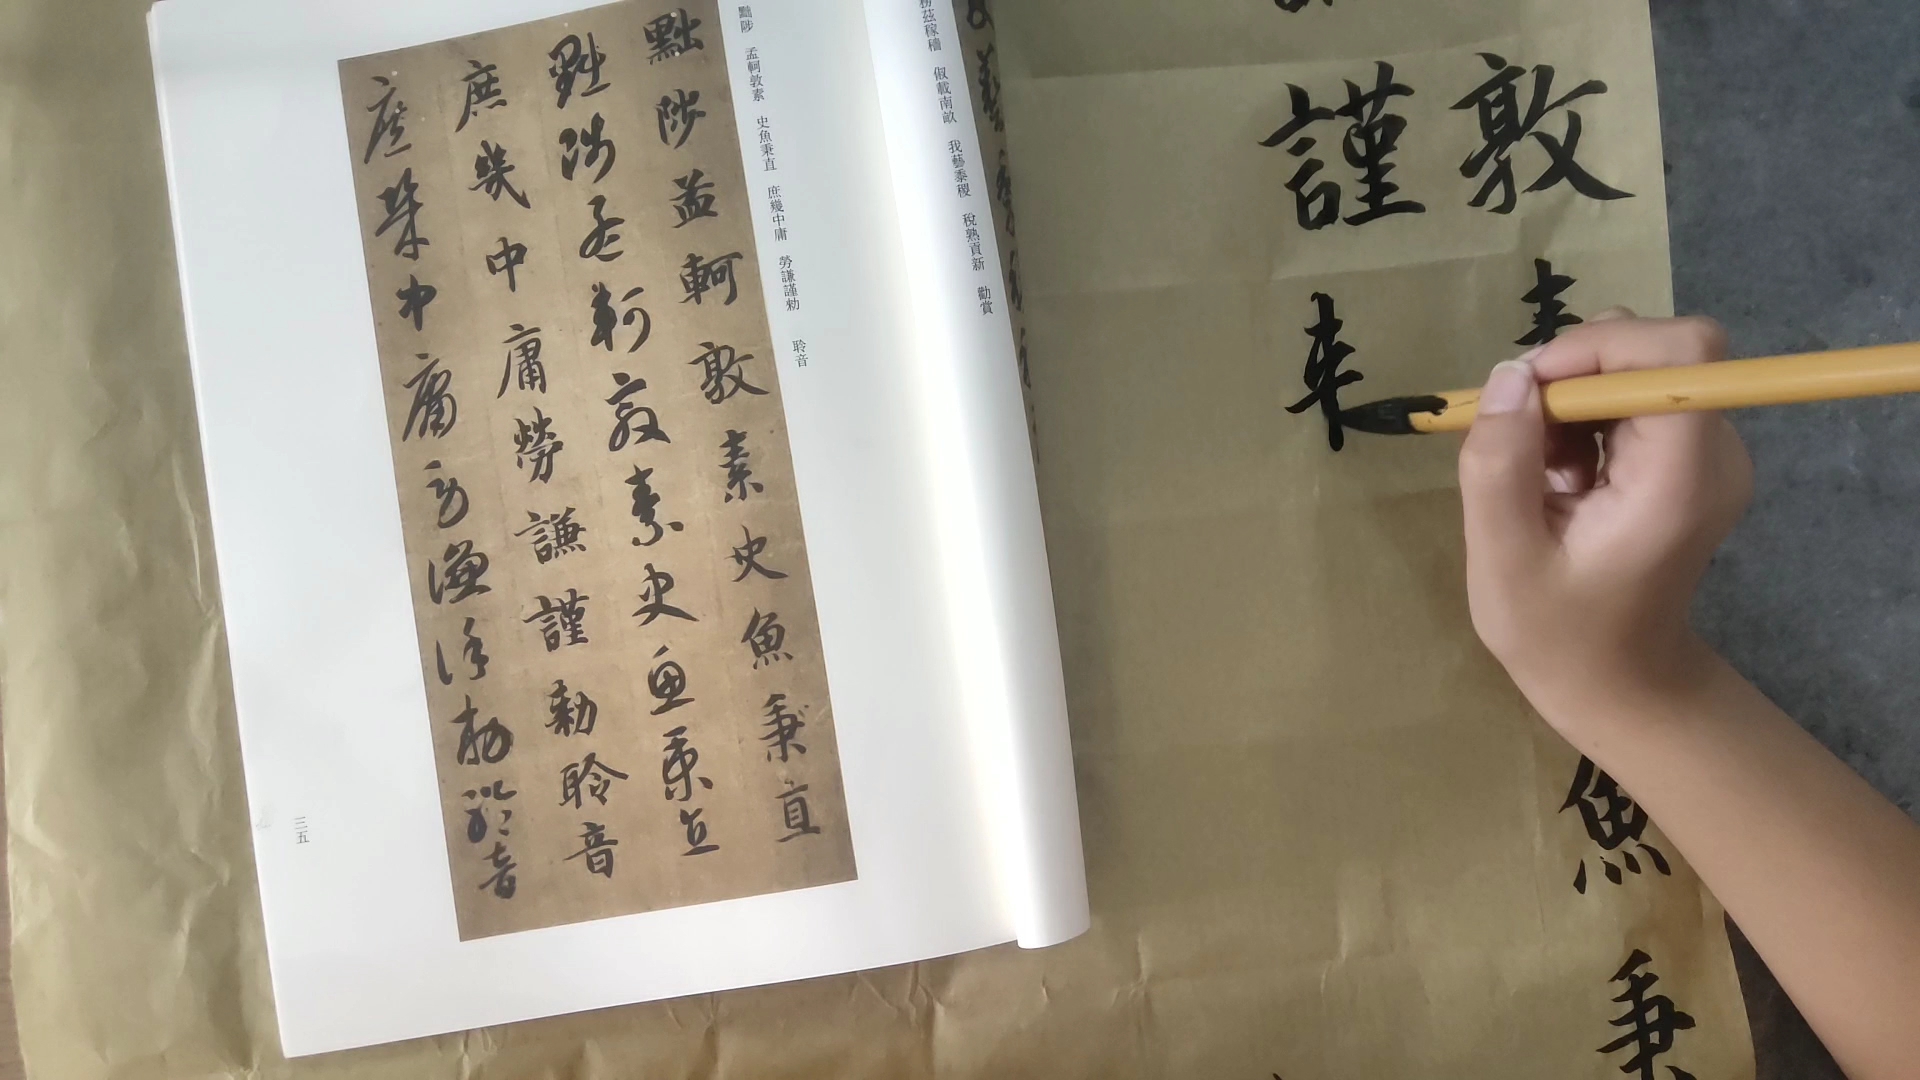 敦
魚秉
謹
務茲稼穡 俶載南畝 我藝黍稷 稅熟貢新 勸賞
黜陟 孟軻敦素 史魚秉直 庶幾中庸 勞謙謹勅 聆音
黜陟孟軻敦素史魚秉直
黜陟孟軻敦素史魚秉直
庶幾中庸勞謙謹勅聆音
庶幾中庸勞謙謹勅聆音
三五